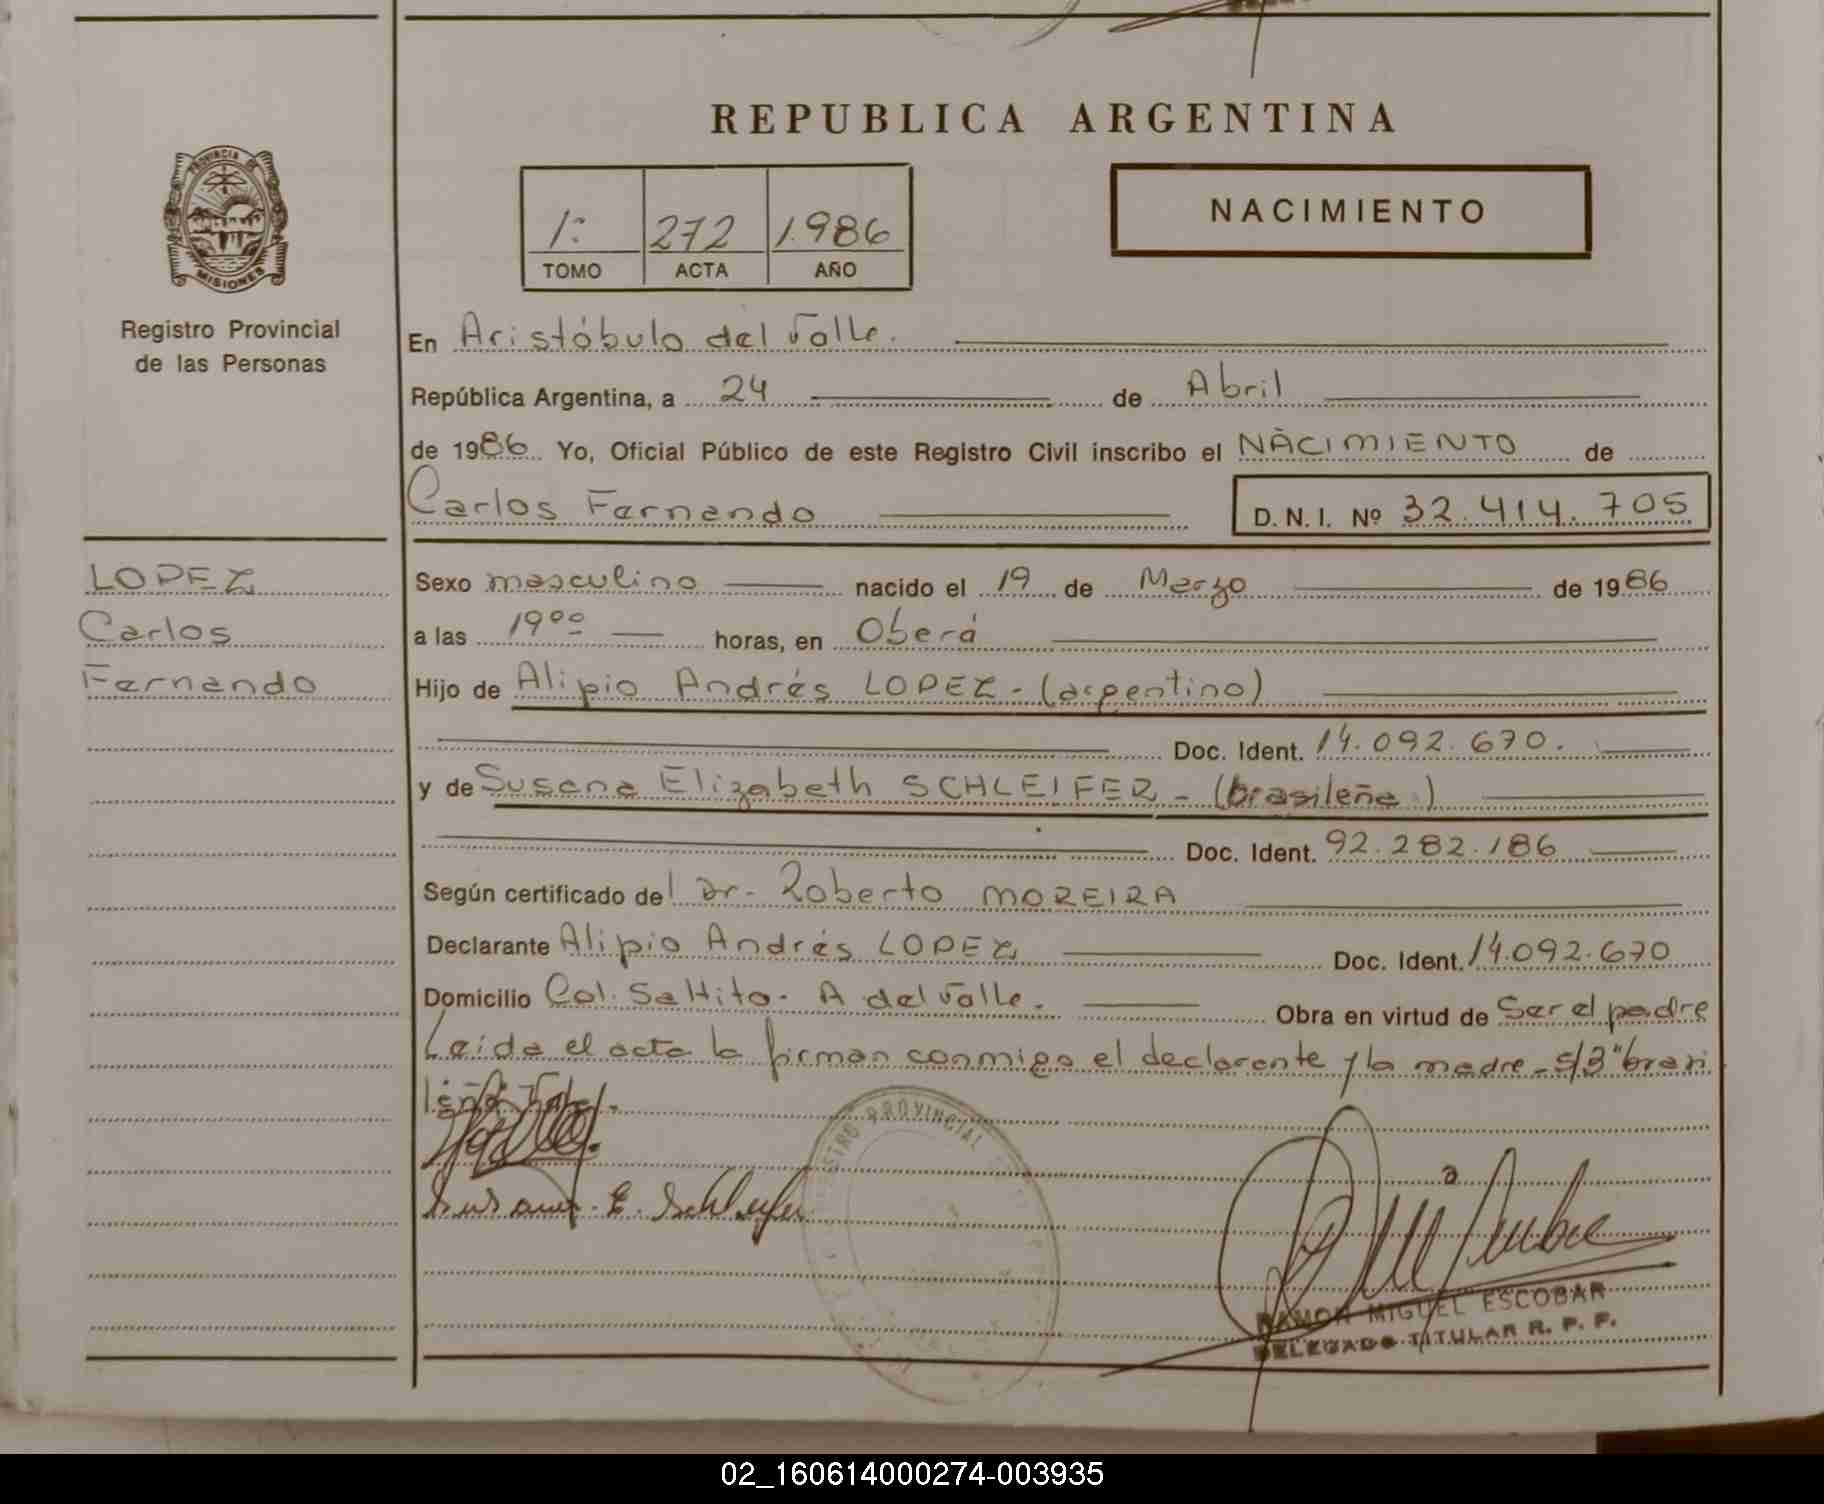 REPUBLICA ARGENTINA
PROVINCIA DE
MISIONES
Registro Provincial
de las Personas
1º 272 1.986
TOMO ACTA AÑO
NACIMIENTO
En Aristóbulo del Valle.
República Argentina, a 24 de Abril
de 1986 Yo, Oficial Público de este Registro Civil inscribo el NACIMIENTO de
Carlos Fernando D. N. I. Nº 32.414.705
LOPEZ
Carlos
Fernando
Sexo masculino nacido el 19 de Marzo de 1986
a las 19⁰⁰ horas, en Oberá
Hijo de Alipio Andrés LOPEZ - (argentino)
Doc. Ident. 14.092.670.
y de Susana Elizabeth SCHLEIFER - (brasileña)
Doc. Ident. 92.282.186
Según certificado del Dr. Roberto MOREIRA
Declarante Alipio Andrés LOPEZ Doc. Ident. 14.092.670
Domicilio Col. Saltito - A del Valle. Obra en virtud de Ser el padre
Leida el acta la firman conmigo el declarante y la madre - S/B "brasi
leña"
Susana E. Schleifer
REGISTRO PROVINCIAL
RAMON MIGUEL ESCOBAR
DELEGADO TITULAR R. P. P.
02_160614000274-003935